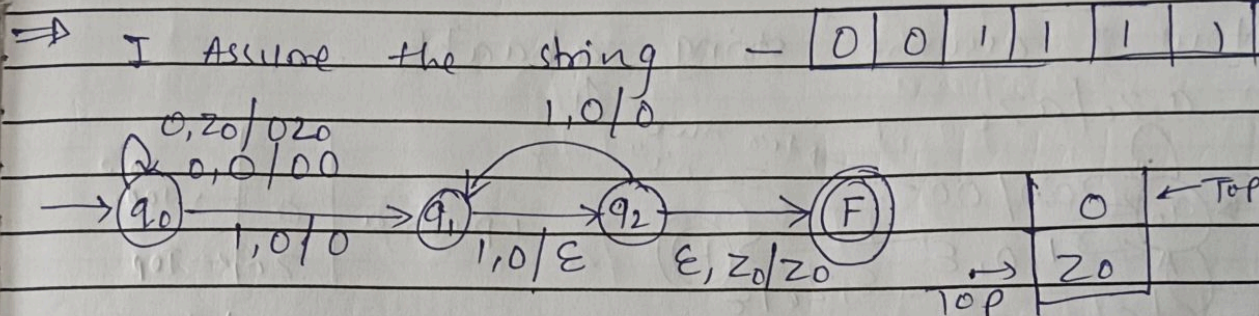 ⇒ I Assume the string - 0 0 1 1 1 1
1,0/0
0,z0/0z0
0,0/00
→ q0 q1 q2 F 0 ← Top
1,0/0 1,0/ε ε, z0/z0 → z0
Top